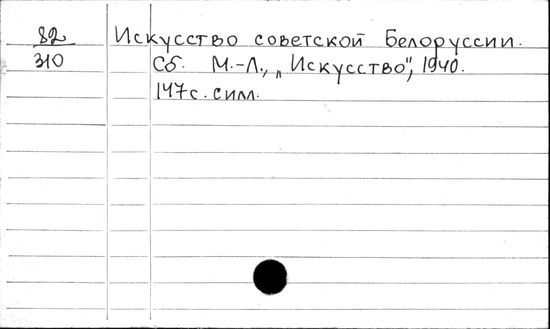 82 Искусство советской Белоруссии.
310 Сб. М.-Л., „Искусство", 1940.
147с. с илл.